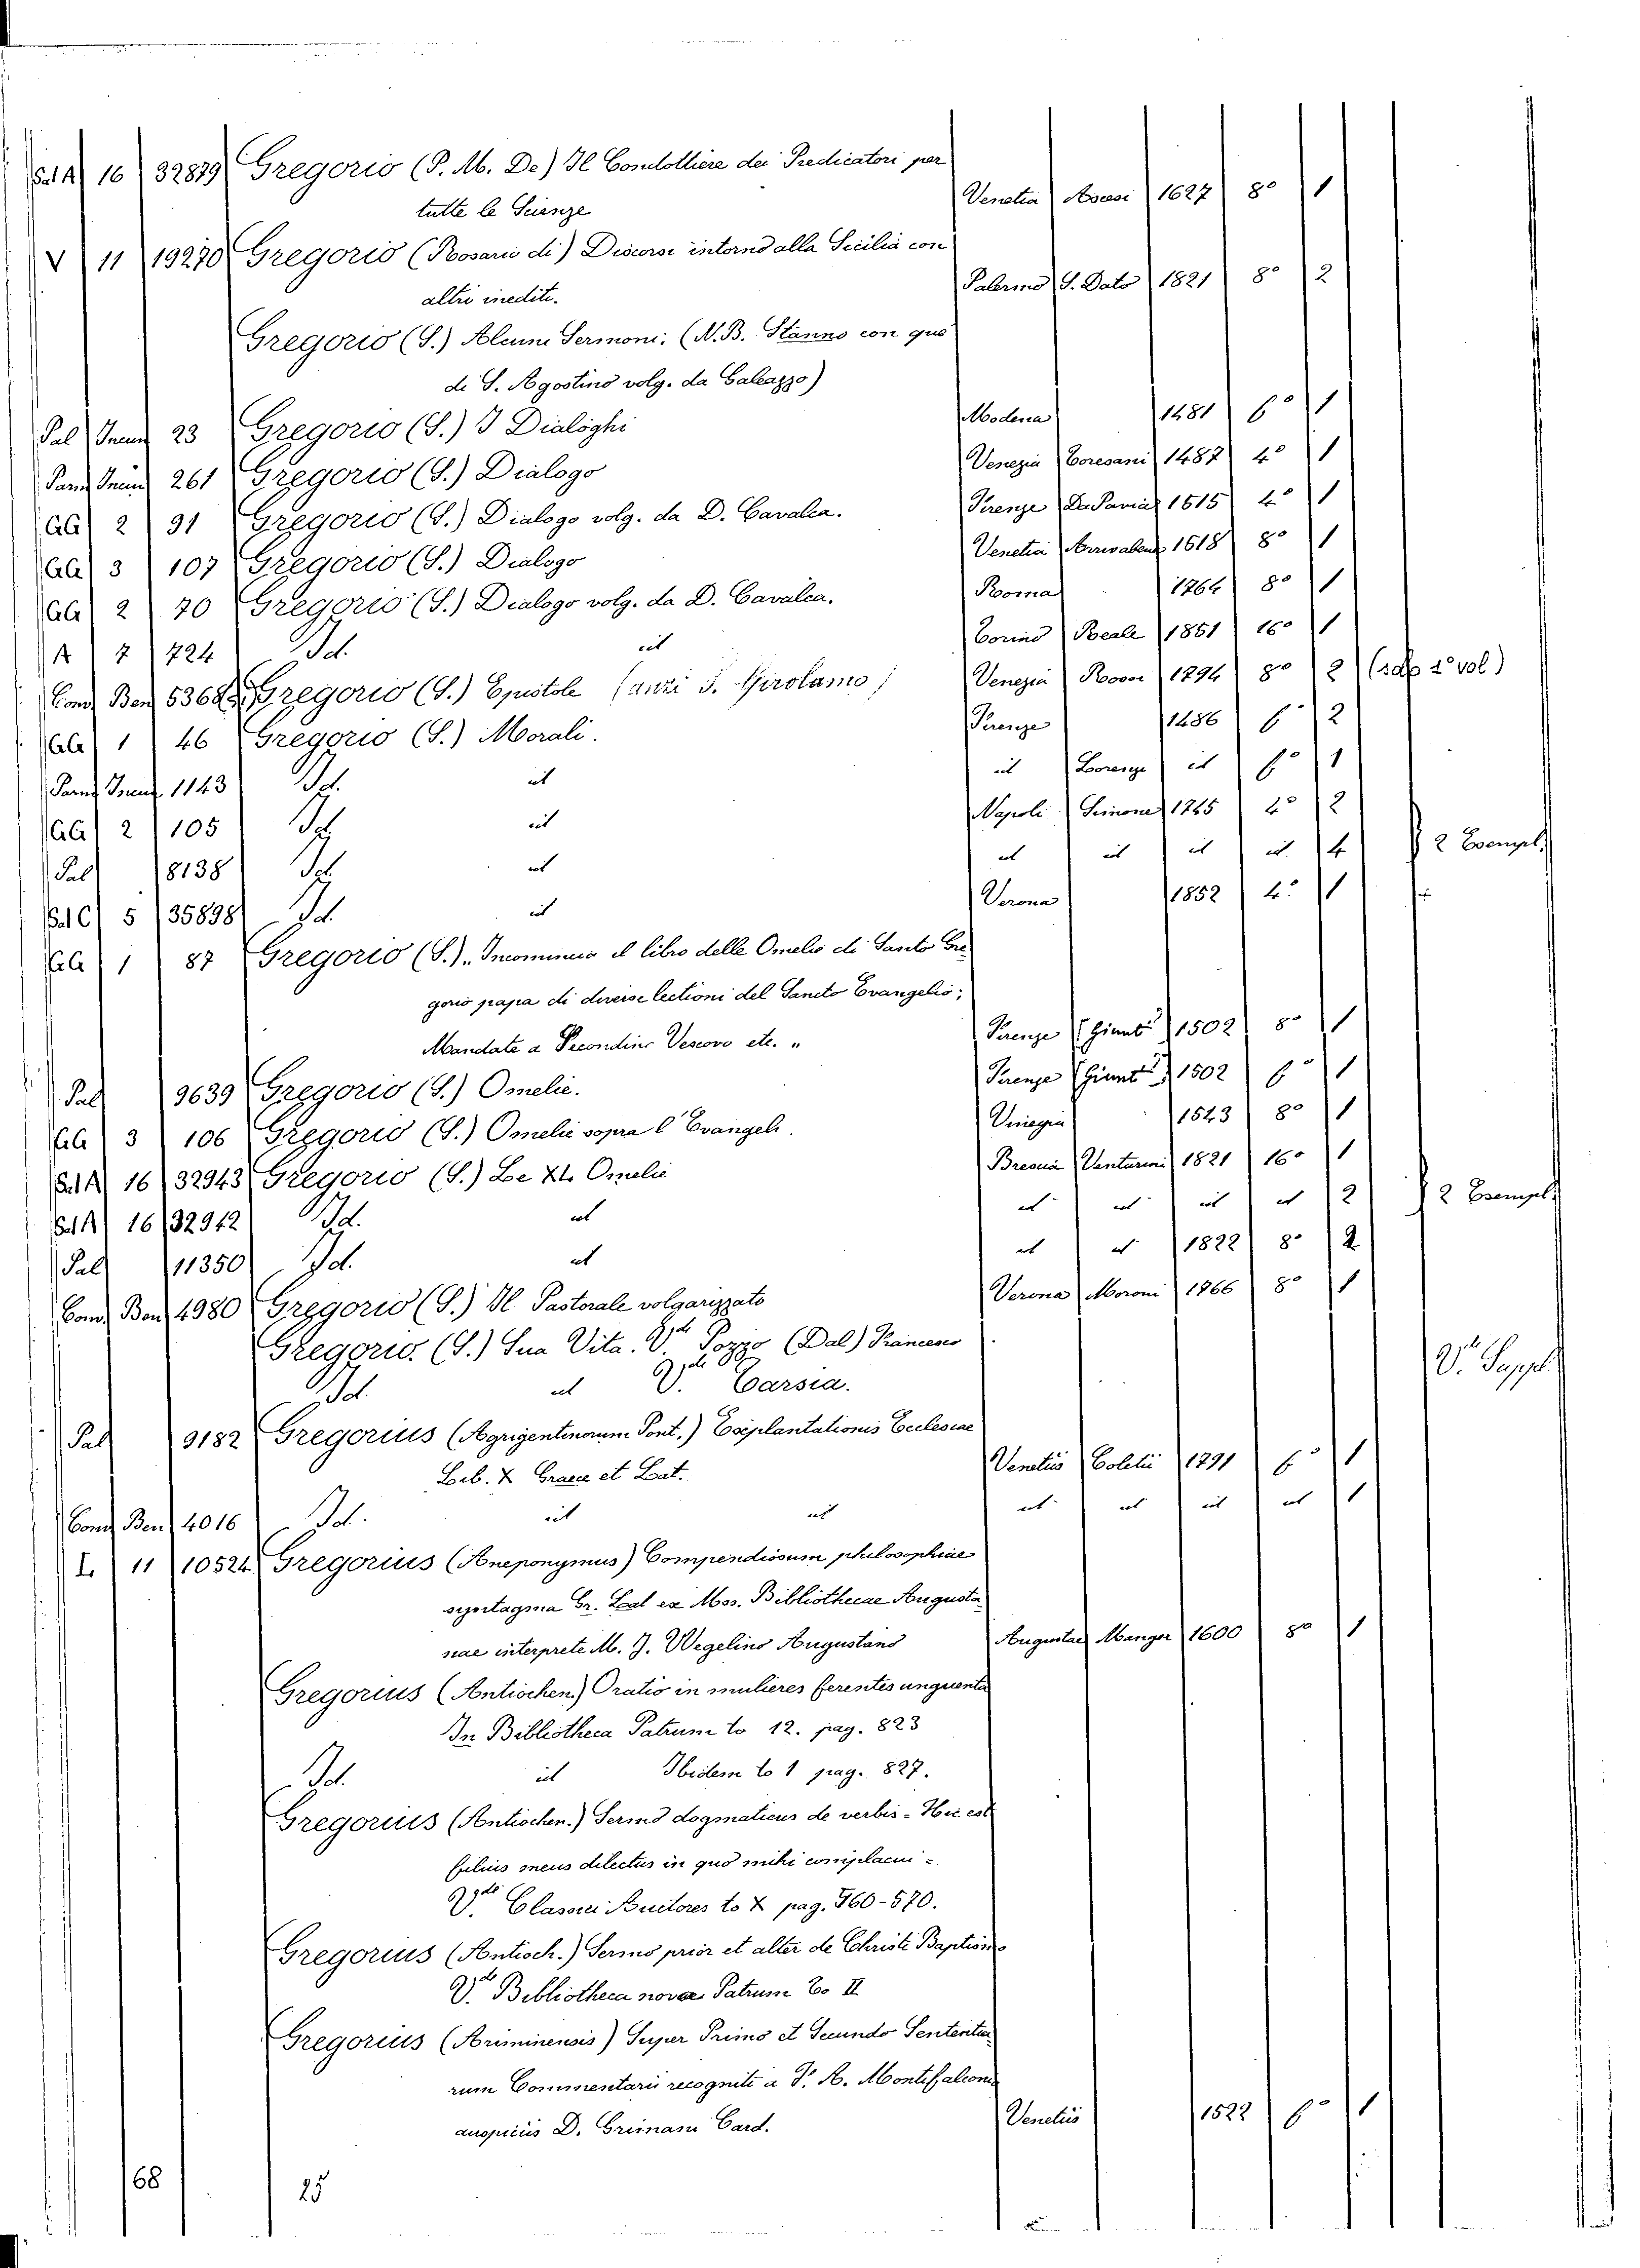 Sal A 16 32879 Gregorio (P. M. De) Il Condottiere dei Predicatori per
tutte le Scienze Venetia 1627 8º 1
V 11 19270 Gregorio (Rosario di) Discorsi intorno alla Sicilia con
altri inediti. Palermo S. Dato 1821 8º 2
Gregorio (S.) Alcuni Sermoni: (N.B. Stanno con que
di S. Agostino volg. da Galeazzo)
Pal 23 Gregorio (S.) I Dialoghi Modena 1481 fº 1
261 Gregorio (S.) Dialogo Venezia Toresani 1487 4º 1
AG 2 91 Gregorio (S.) Dialogo volg. da D. Cavalca. Firenze De Pavia 1515 4º 1
AG 3 107 Gregorio (S.) Dialogo Venetia 1518 8º 1
AG 2 70 Gregorio (S.) Dialogo volg. da D. Cavalca. Roma 1764 8º 1
A 7 724 Id. id Torino Reale 1851 16º 1
Cons Ben 5368 Gregorio (S.) Epistole (anzi S. Girolamo) Venezia Rossi 1794 8º 2 (solo 2º vol)
1 46 Gregorio (S.) Morali. Firenze 1486 fº 2
1143 Id. id id Lorenzo id fº 1
AG 2 105 Id. id Napoli Simone 1745 4º 2
Pal 8138 Id. id id id id id 4 2 Esempl.
Sal C 5 35898 Id. id Verona 1852 4º 1
1 87 Gregorio (S.) „ Incomincia il libro delle Omelie di Santo Gre
gorio papa di diverse lectioni del Sancto Evangelio;
Mandate a Secondino Vescovo etc. „ Firenze (Giunti) 1502 8º 1
Pal 9639 Gregorio (S.) Omelie. Firenze (Giunti) 1502 fº 1
3 106 Gregorio (S.) Omelie sopra l'Evangeli. Vinegia 1543 8º 1
Sal A 16 32943 Gregorio (S.) Le XL Omelie Brescia Venturini 1821 16º 1
Sal A 16 32942 Id. id id id id id 2 2 Esempl.
Pal 11350 Id. id id id 1822 8º 2
Cons Ben 4980 Gregorio (S.) Il Pastorale volgarizzato Verona Moroni 1766 8º 1
Gregorio. (S.) Sua Vita. Vdi Pozzo (Dal) Francesco
Id. id Vdi Tarsia. Vdi Suppl.
Pal 9182 Gregorius (Agrigentinorum Pont.) Explantationis Ecclesiae
Lib. X Graece et Lat. Venetiis Coletii 1791 fº 1
Cons Ben 4016 Id. id id id id id id 1
L 11 10524 Gregorius (Aneponymus) Compendiosum philosophiae
syntagma Gr. Lat ex Mss. Bibliothecae Augusta
nae interprete M. J. Wegelino Augustano Augustae Manger 1600 8º 1
Gregorius (Antiochen.) Oratio in mulieres ferentes unguenta
In Bibliotheca Patrum to 12. pag. 823
Id. id Ibidem to 1 pag. 827.
Gregorius (Antiochen.) Sermo dogmaticus de verbis - Hic est
filius meus dilectus in quo mihi complacui -
Vdi Classici Auctores to X pag. 560-570.
Gregorius (Antioch.) Sermo prior et alter de Christi Baptismo
Vdi Bibliotheca novae Patrum To II
Gregorius (Ariminensis) Super Primo et Secundo Sententia
rum Commentarii recogniti a P. A. Montifalconio
auspiciis D. Grimani Card. Venetiis 1522 fº 1
68 25